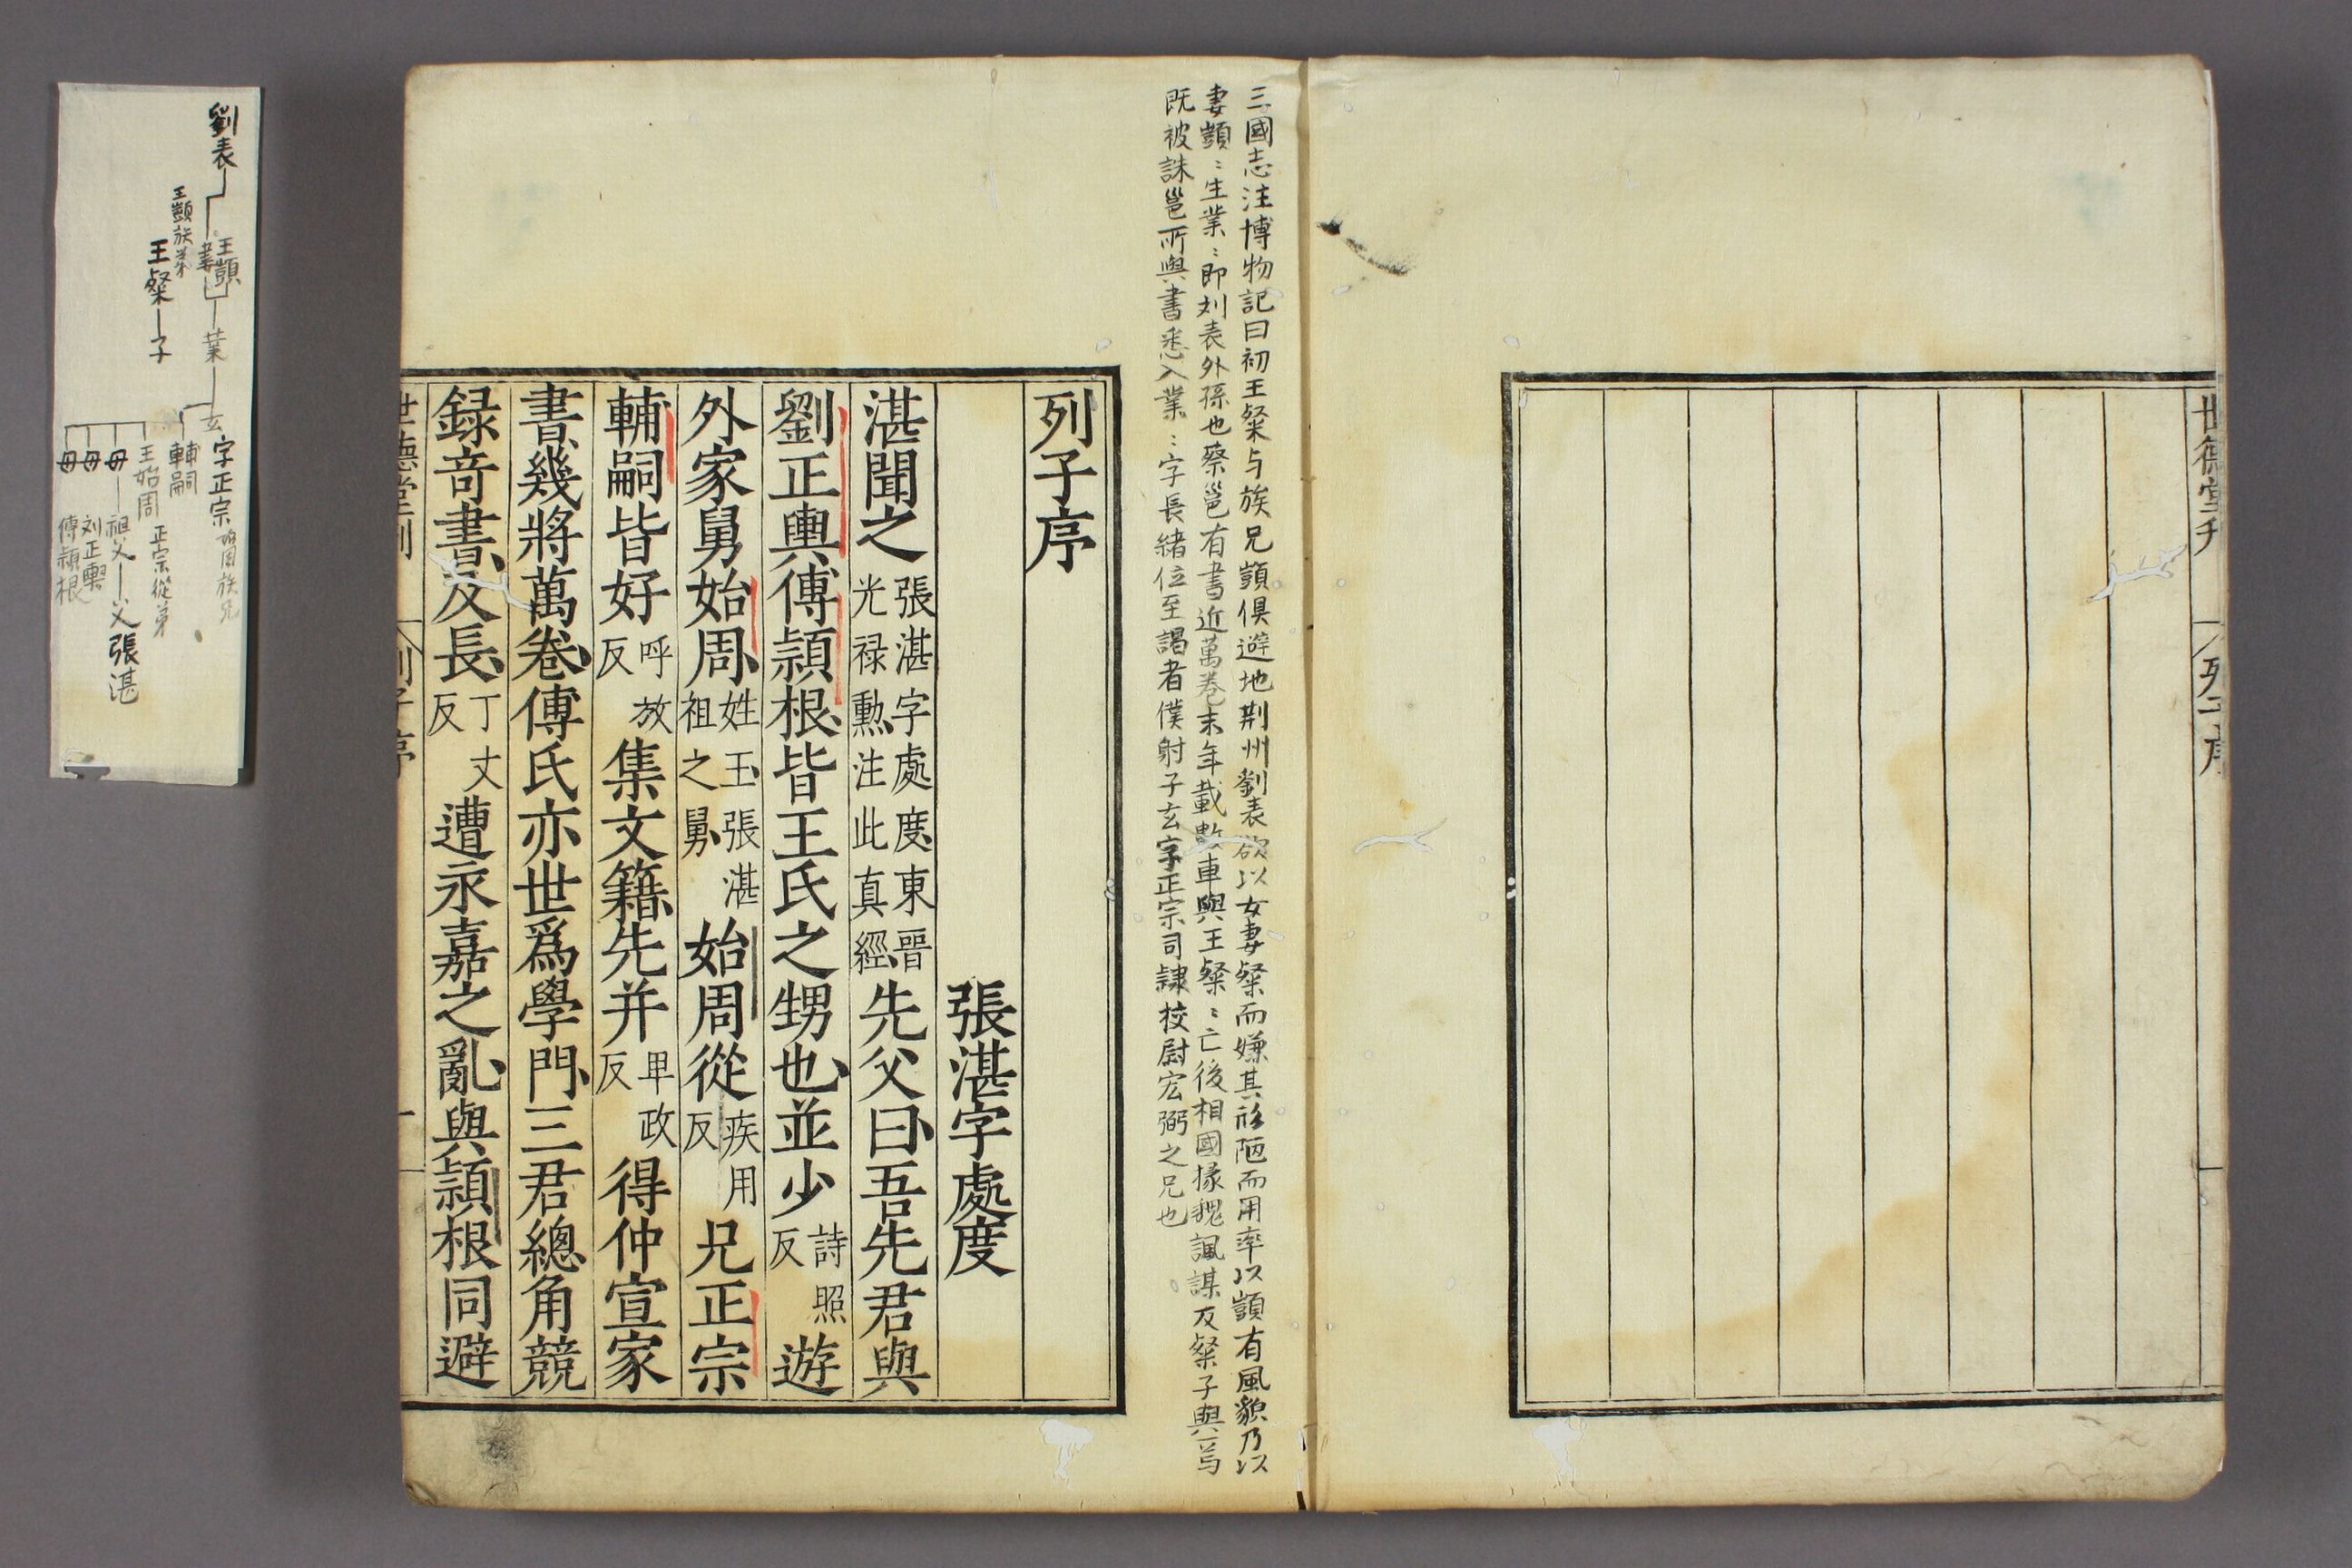 世德堂刊
列子序
三國志注博物記曰初王粲与族兄顗俱避地荆州劉表欲以女妻粲而嫌其形陋而用率以顗有風貌乃以
妻顗〻生業〻即刘表外孫也蔡邕有書近萬卷末年載數車與王粲〻亡後相國掾魏諷謀反粲子與焉
既被誅邕所與書悉入業〻字長緒位至謁者僕射子玄字正宗司隷校尉宏弼之兄也
列子序
張湛字處度
湛聞之張湛字處度東晉光禄勲注此真經先父曰吾先君與
劉正輿傅頴根皆王氏之甥也並少詩照反遊
外家舅始周姓王張湛祖之舅始周從疾用反兄正宗
輔嗣皆好呼放反集文籍先并畀政反得仲宣家
書幾將萬卷傅氏亦世爲學門三君總角競
録竒書及長丁丈反遭永嘉之亂與頴根同避
世德堂刊
列子序
一
劉表
王顗
妻
王顗族弟
王粲
子
業
玄
字正宗
始周族兄
輔嗣
正宗從弟
王始周
母
祖父
父
張湛
母
刘正輿
母
傅頴根